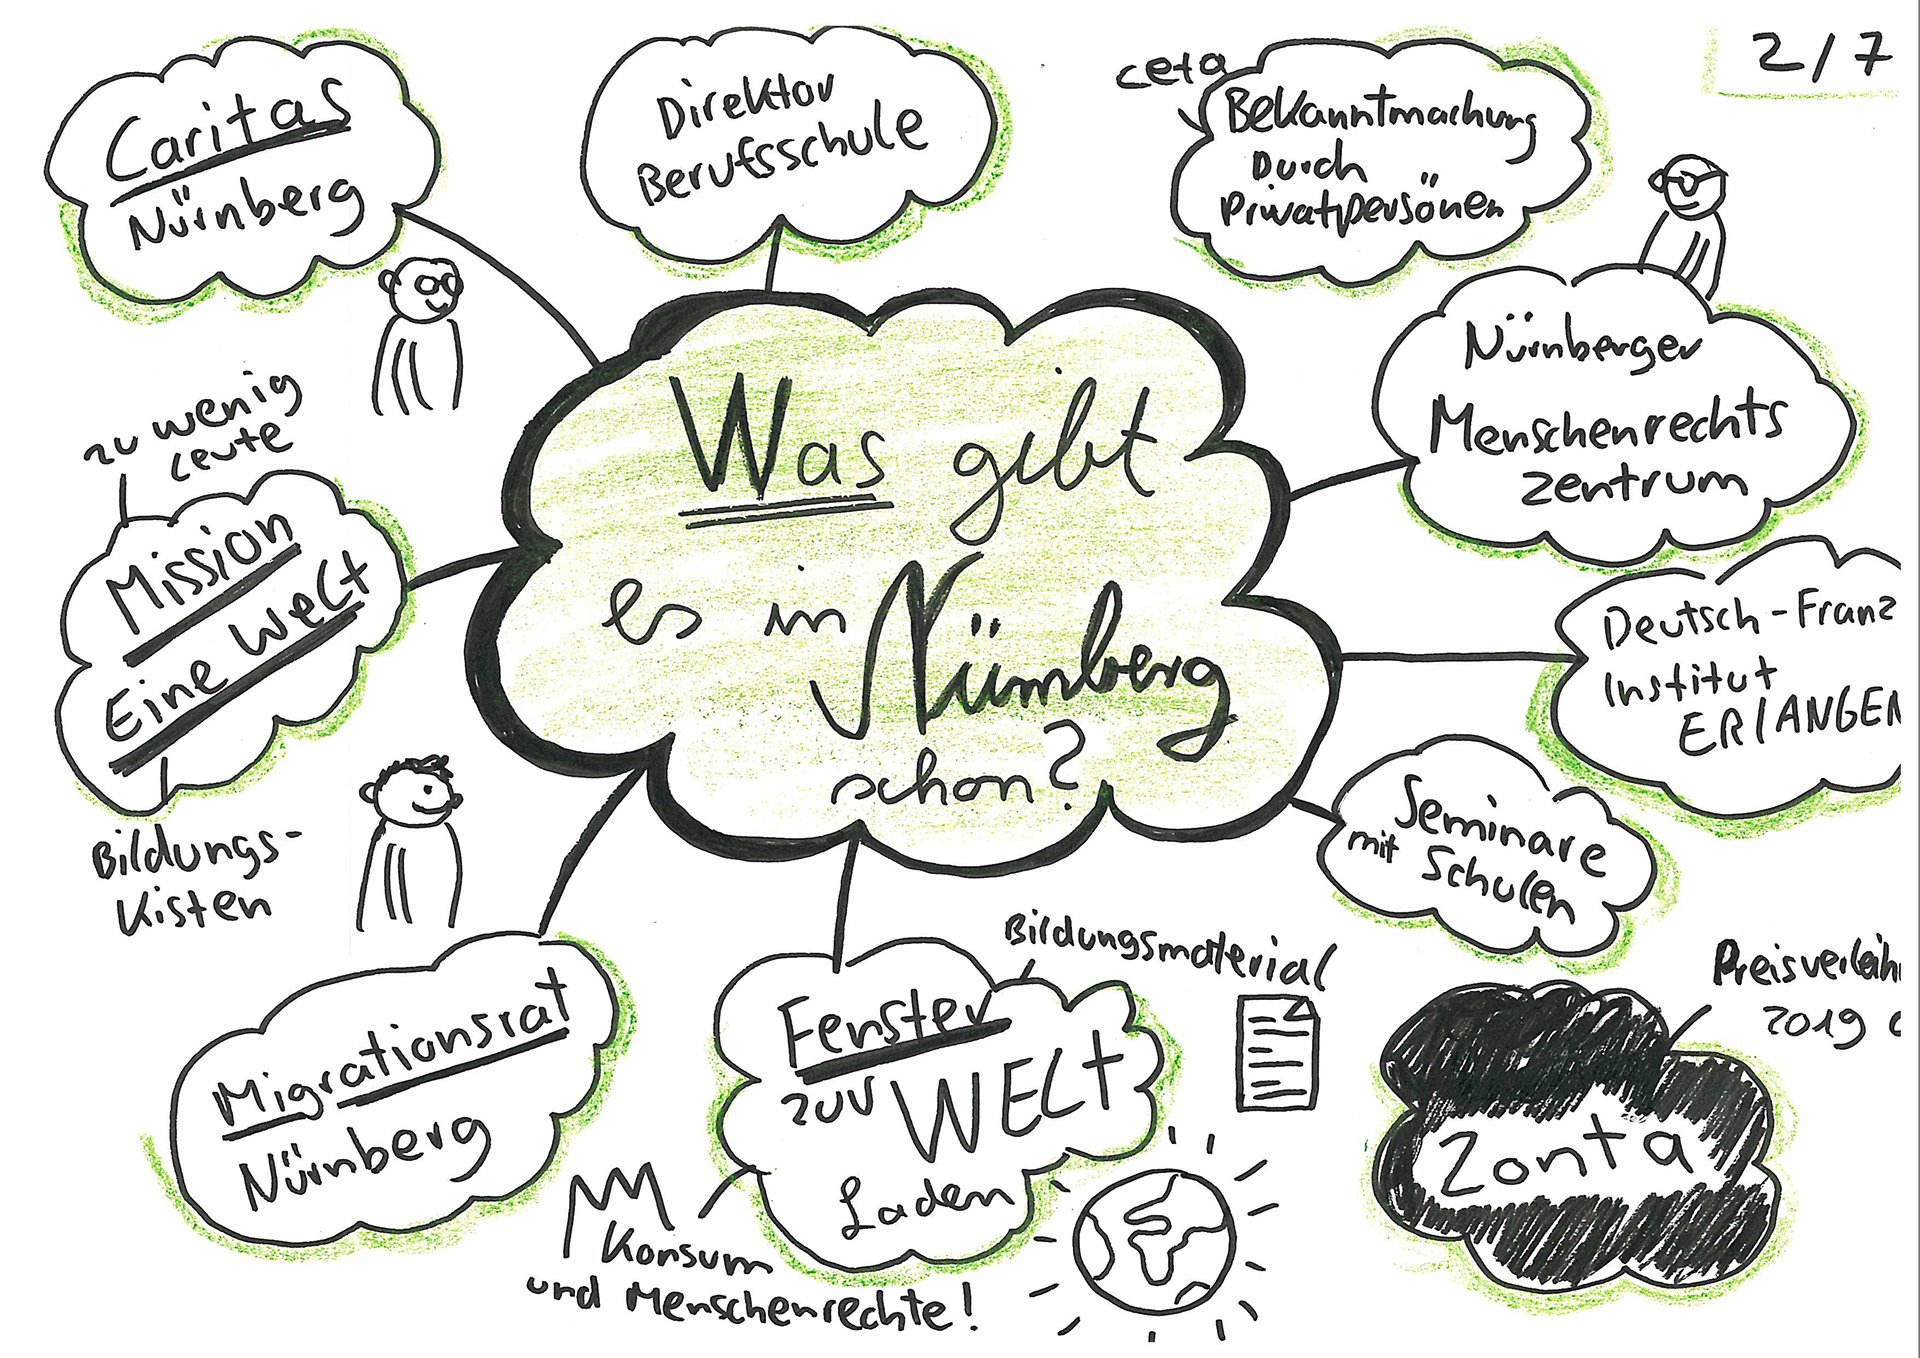 2/7
Caritas
Nürnberg
Direktor
Berufsschule
ceta
Bekanntmachung
Durch
Privatpersönen
Nürnberger
Menschenrechts
zentrum
zu wenig
Leute
Mission
Eine Welt
Bildungs-
Kisten
Was gibt
es in Nürnberg
schon?
Deutsch-Franz
Institut
ERLANGEN
Seminare
mit Schulen
Migrationsrat
Nürnberg
Fenster
zur WELT
Laden
Bildungsmaterial
Konsum
und Menschenrechte!
Preisverleih
2019
Zonta